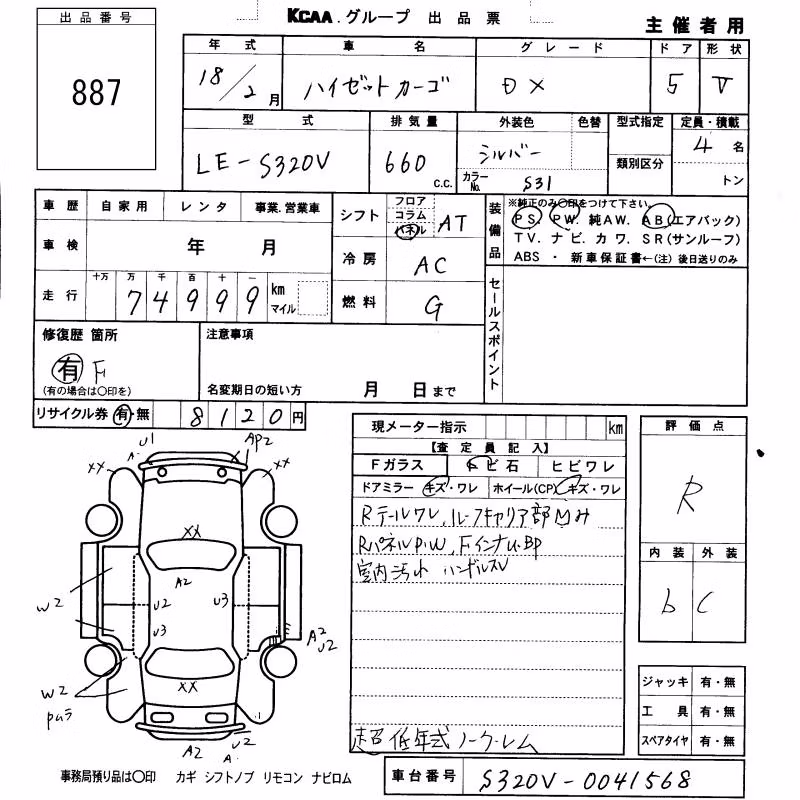 出品番号
KCAA.グループ 出品票
主催者用
887
年式 車名 グレード ドア 形状
18/2月 ハイゼットカーゴ DX 5 V
型式 排気量 外装色 色替 型式指定 定員・積載
LE-S320V 660 C.C. シルバー カラーNo. S31 類別区分 4名
トン
車歴 自家用 レンタ 事業.営業車
車検 年 月
十万 万 千 百 十 一
走行 74999 km マイル
シフト フロア コラム パネル AT
冷房 AC
燃料 G
装備品
※純正のみ〇印をつけて下さい。
PS. PW. 純AW. AB(エアバック)
TV. ナビ. カワ. SR(サンルーフ)
ABS ・ 新車保証書←(注)後日送りのみ
セールスポイント
修復歴 箇所
有 F
(有の場合は〇印を)
注意事項
名変期日の短い方 月 日まで
リサイクル券 有・無 8120円
現メーター指示 km
【査定員記入】
Fガラス トビ石 ヒビワレ
ドアミラー キズ・ワレ ホイール(CP) キズ・ワレ
Rテールワレ、ルーフキャリア部凹み
RパネルP.W、FインナーU・BP
室内汚れ ハンドルスレ
超低年式ノークレム
評価点
R
内装 外装
b C
ジャッキ 有・無
工具 有・無
スペアタイヤ 有・無
U1
A.
AP2
XX
XX
XX
A2
W2
U2
U3
U3
A2
U2
W2
XX
A2
U2
A.
事務局預り品は〇印 カギ シフトノブ リモコン ナビロム
車台番号 S320V-0041568